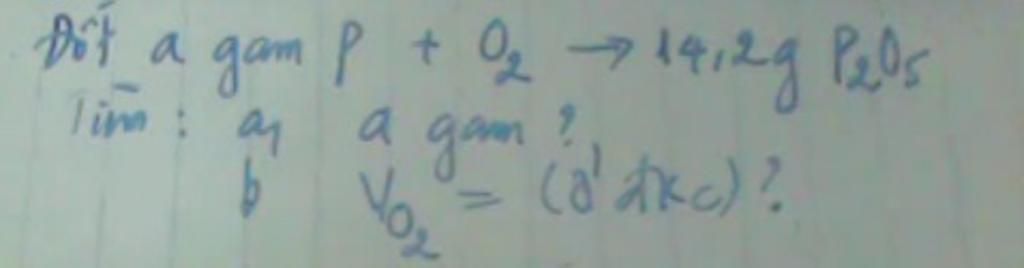 Đốt a gam P + O2 → 14,2g P2O5
Tìm : a, a gam ?
b VO2 = (ở đkc) ?